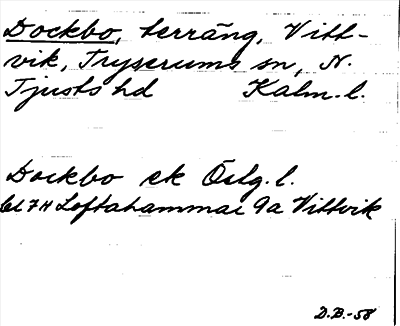 Dockbo, terräng, Vitt-
vik, Tryserums sn, N.
Tjusts hd Kalm. l.
Dockbo ek Östg. l.
bl 7H Loftahammar 9a Vittvik
D.B.-58